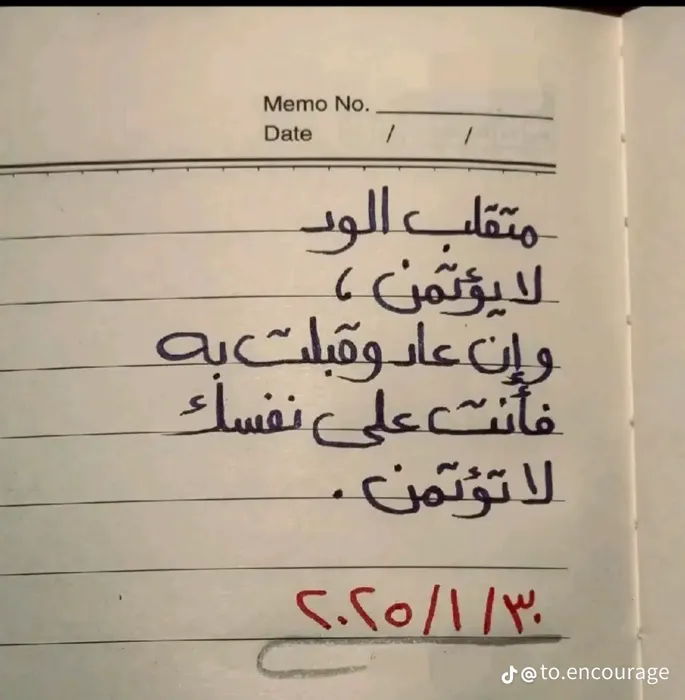 Memo No.
Date / /
متقلب الود
لا يؤتمن ،
وإن عاد وقبلت به
فأنت على نفسك
لا تؤتمن .
٢٠٢٥/١/٣٠
@to.encourage